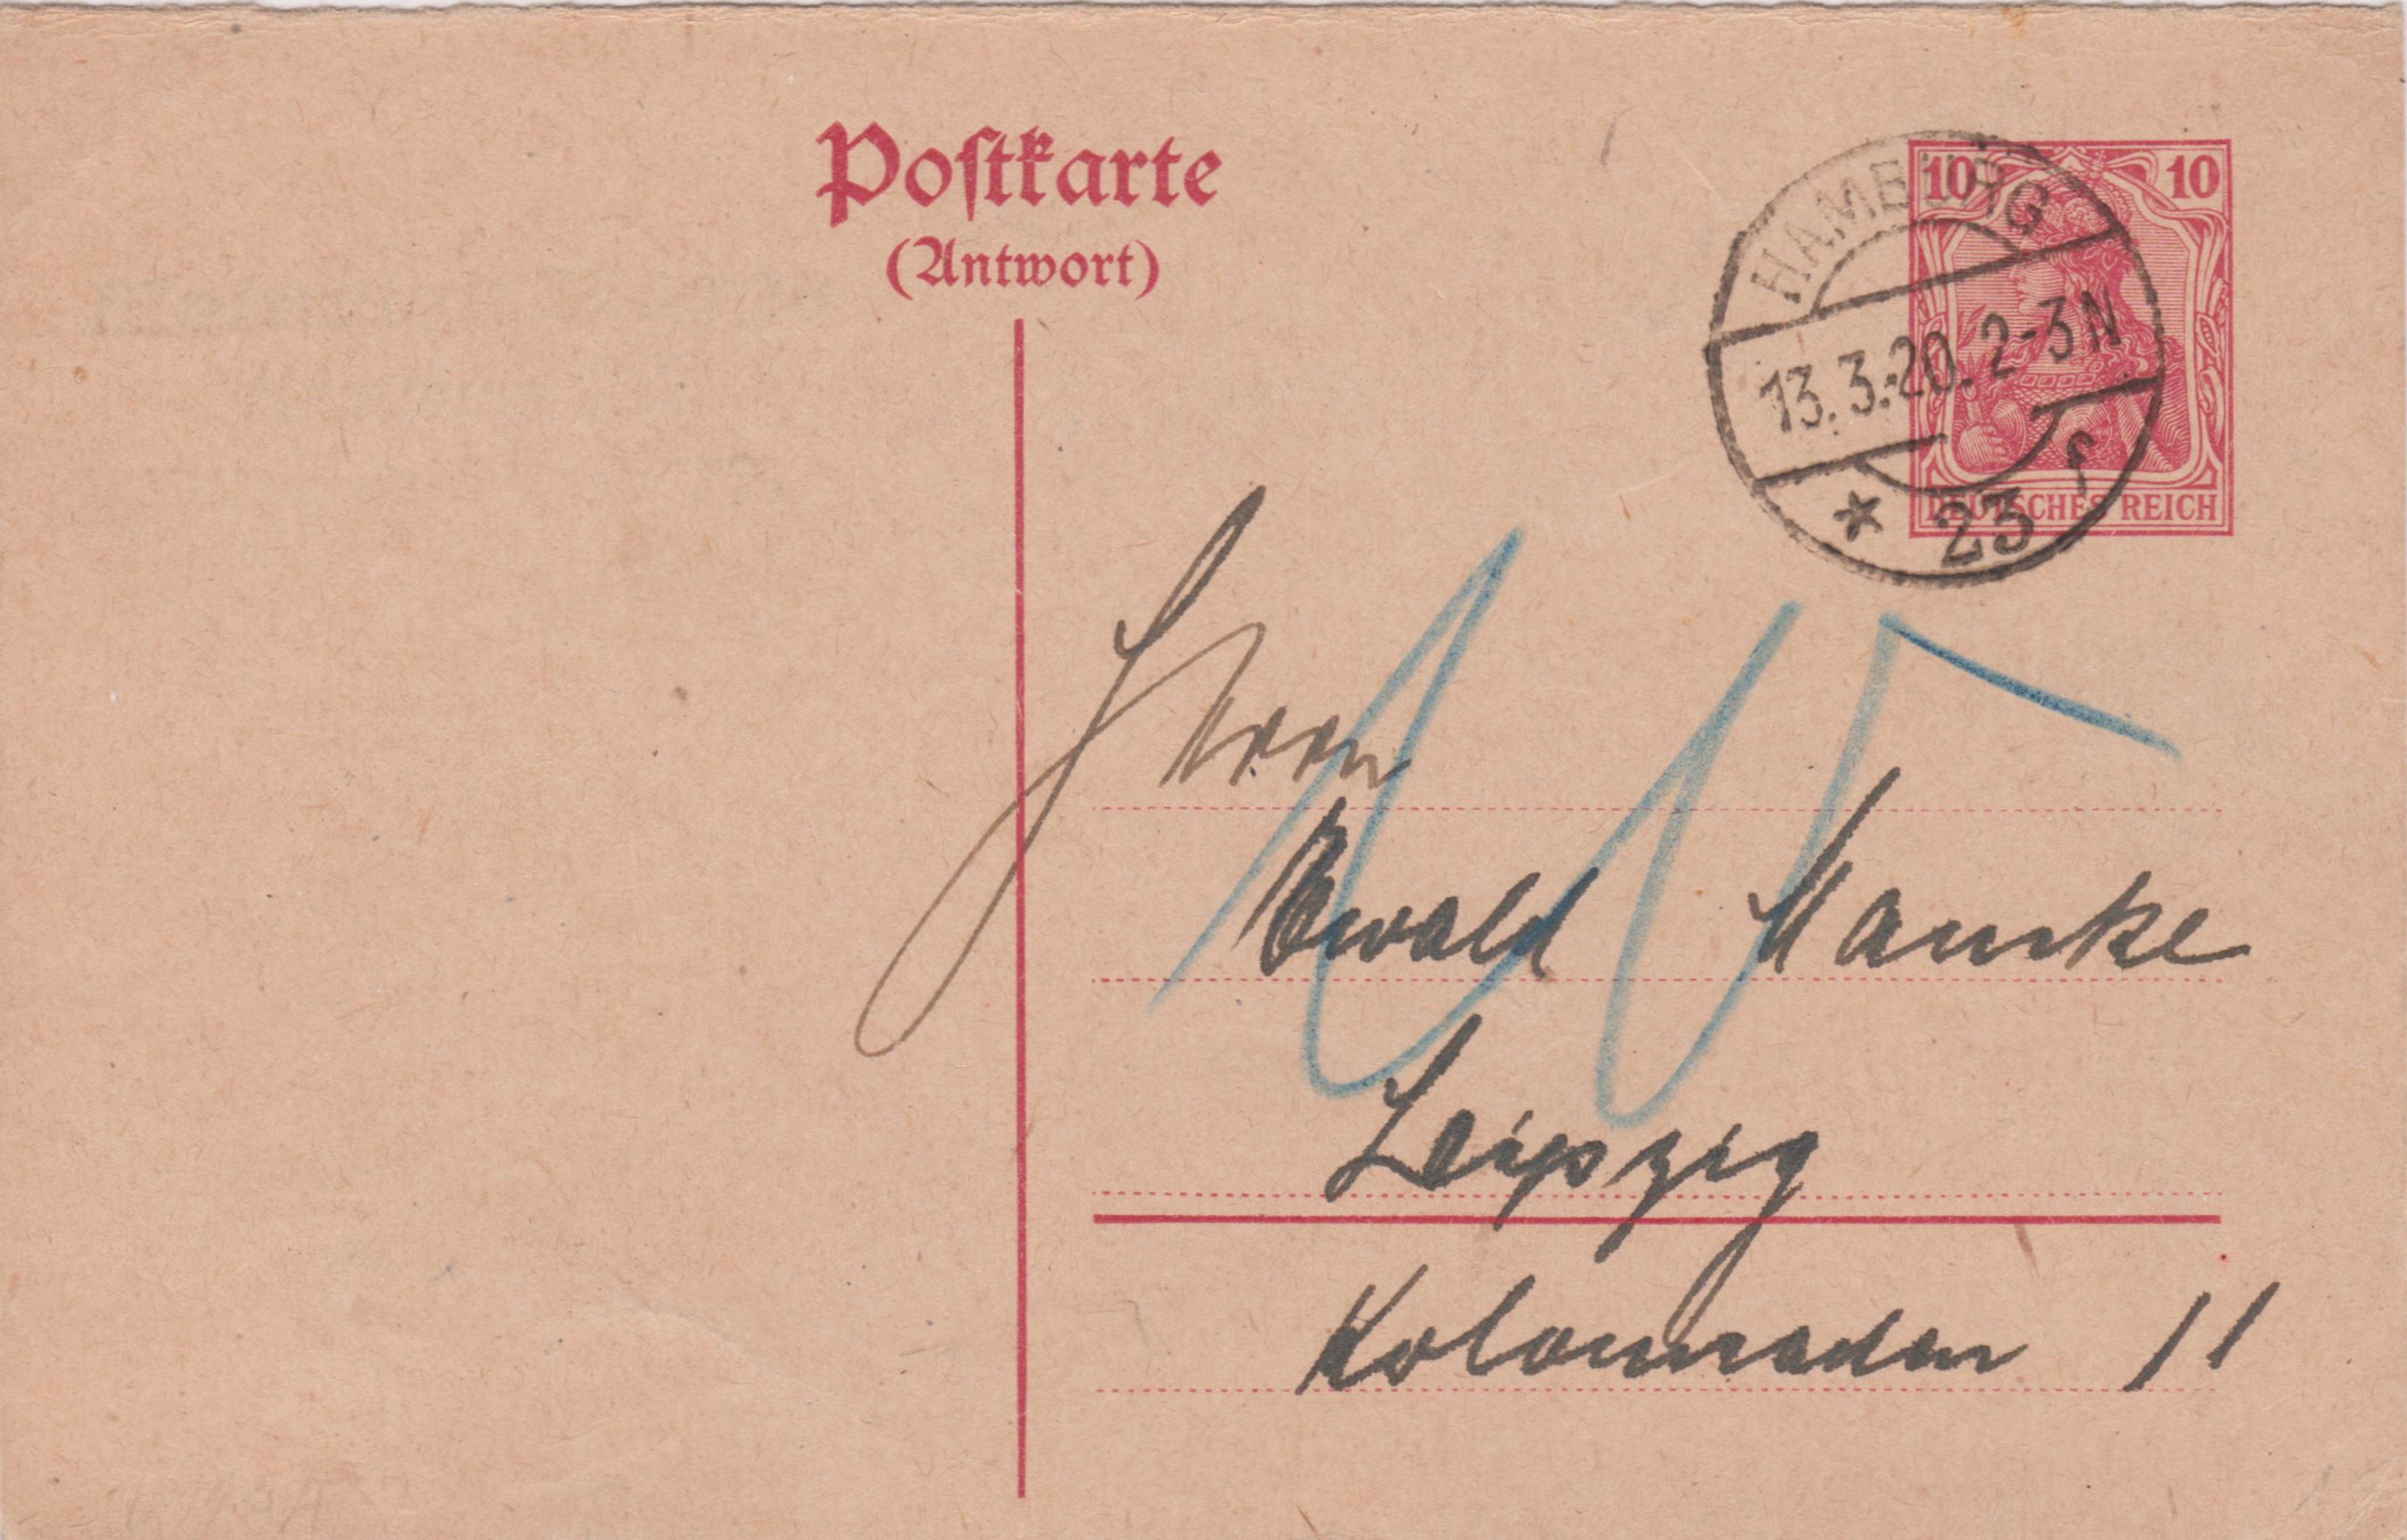 Postkarte
(Antwort)
10 10
DEUTSCHES REICH
HAMBURG
13.3.20. 2-3N
* 23 f
Herrn
Ewald Mancke
Leipzig
Kolonnaden 11